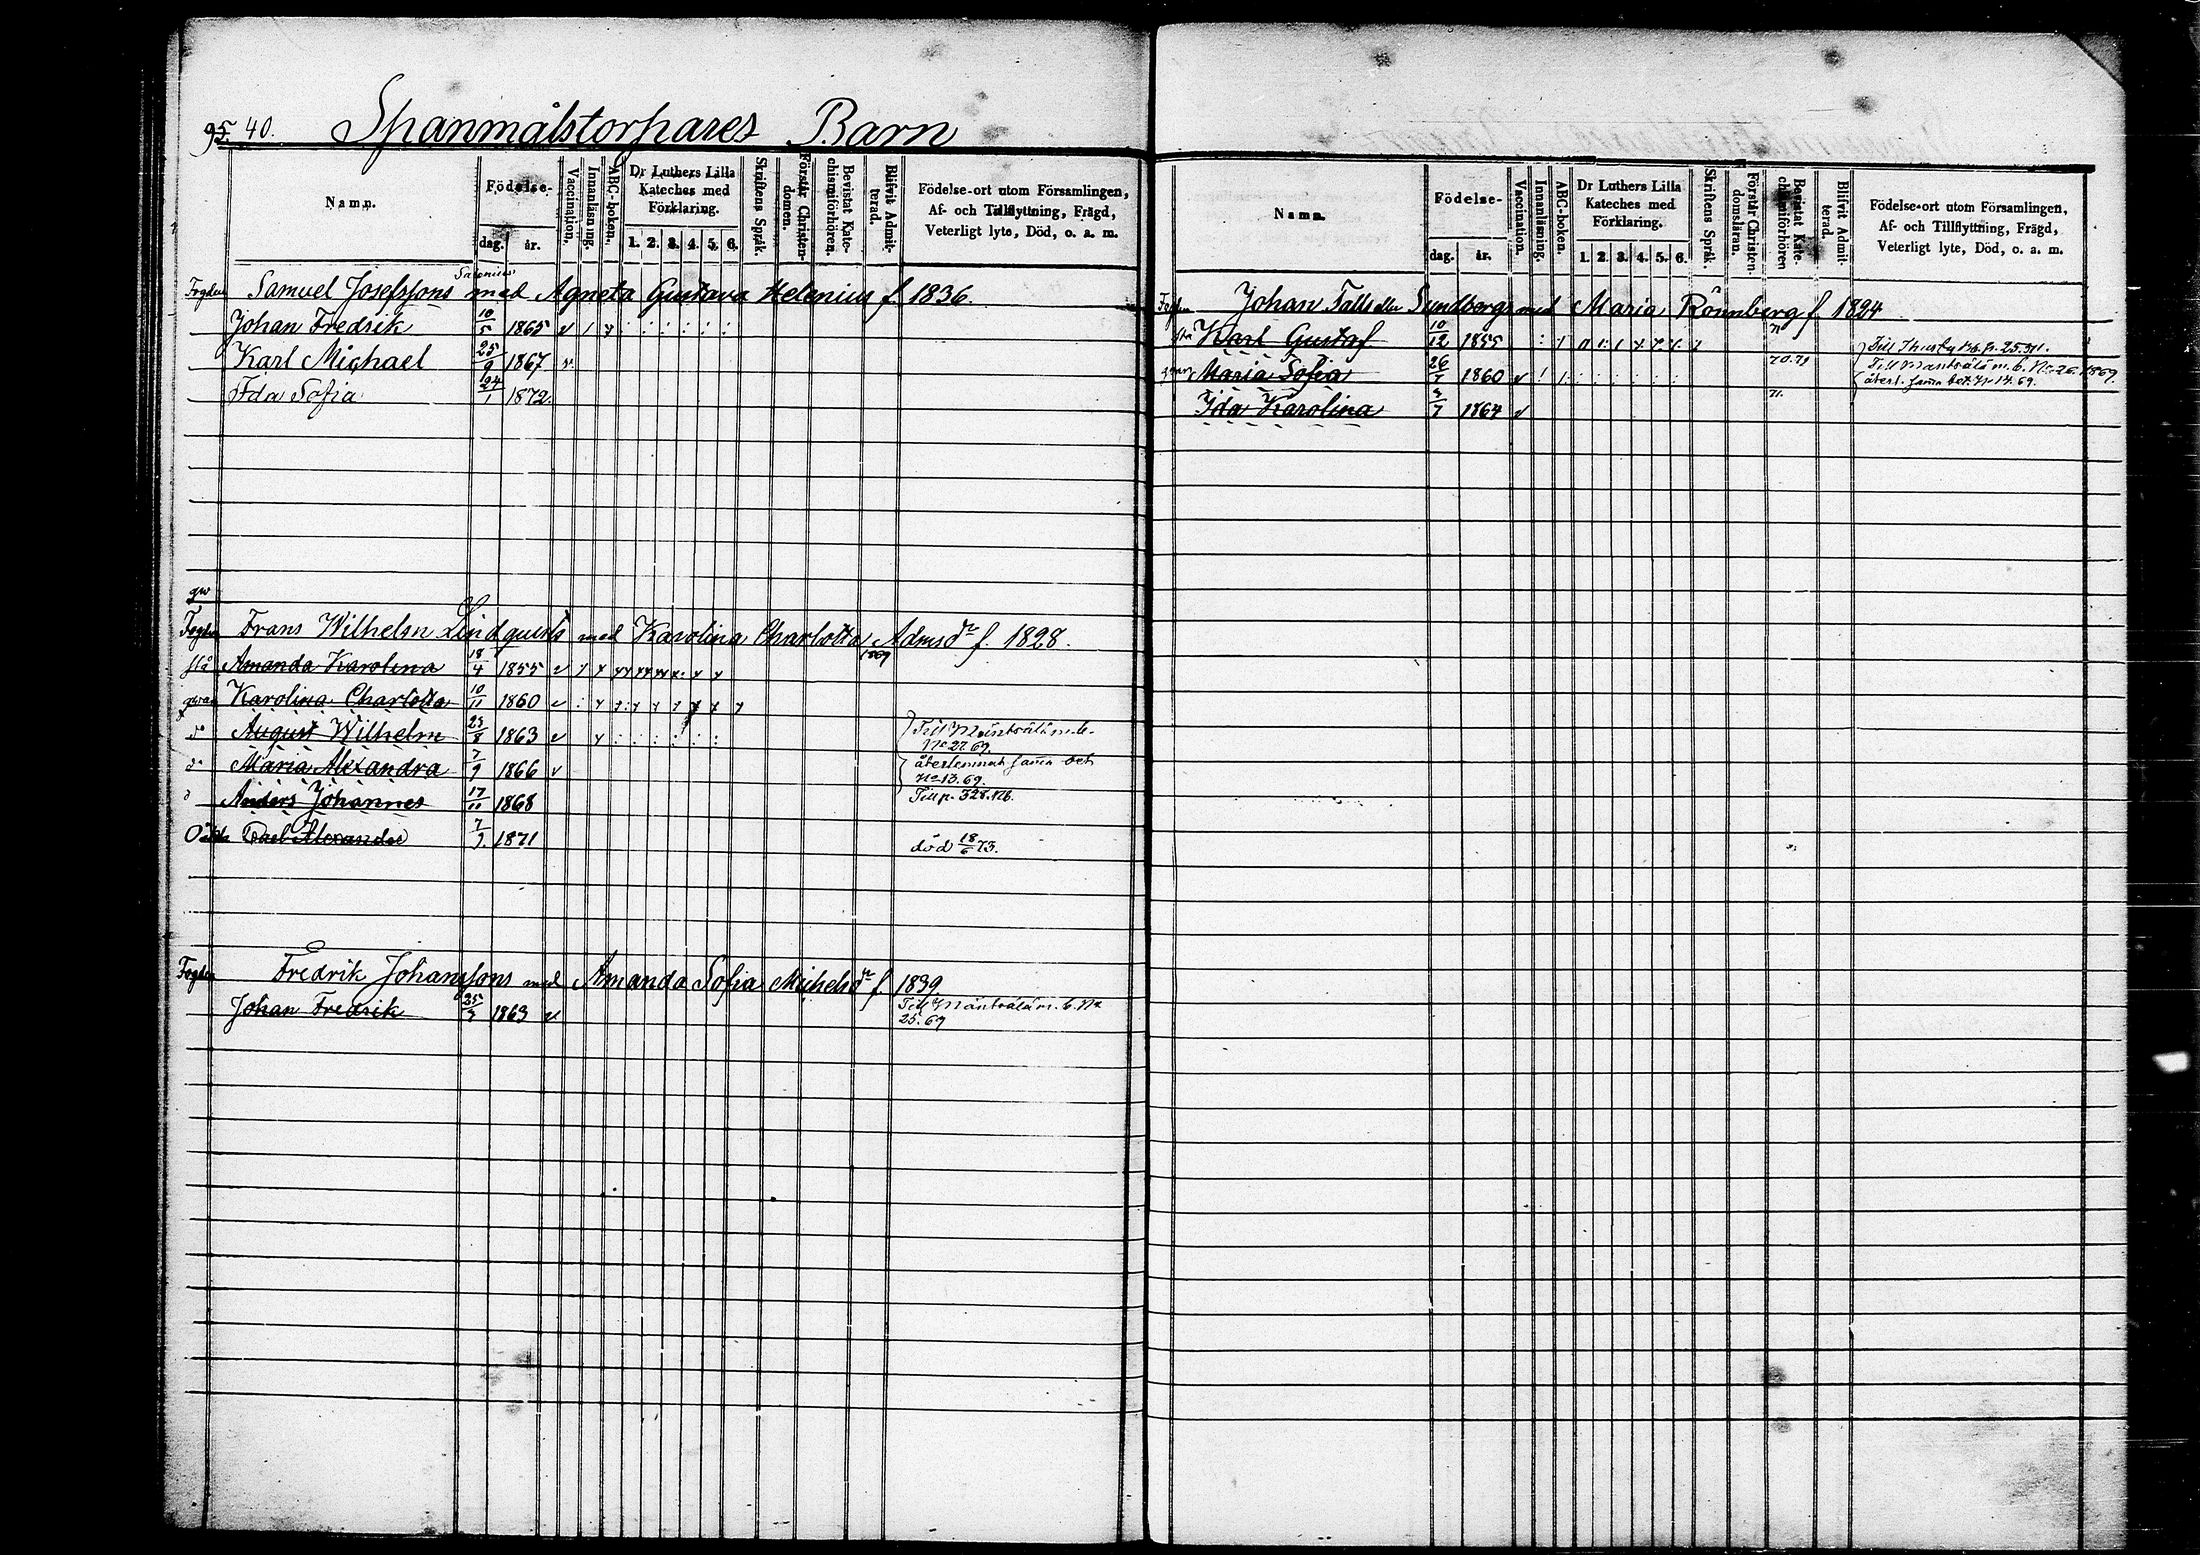 95. 40. Spanmålstorpares Barn
Namn.
Födelse-
dag. år.
Vaccination.
Innanläsning.
ABC-boken.
Dr Luthers Lilla
Kateches med
Förklaring.
1. 2. 3. 4. 5. 6.
Skriftens Språk.
Förstår Christen-
domen.
Bevistat Kate-
chismiförhören.
Blifvit Admit-
terad.
Födelse-ort utom Församlingen,
Af- och Tillflyttning, Frägd,
Veterligt lyte, Död, o. a. m.
Fogden Samuel Josefssons med Agneta Gustava Helenius f. 1836.
Johan Fredrik 10/5 1865
Karl Michael 25/9 1867
Ida Sofia 24/1 1872.
Fogden Frans Wilhelm Lindqvists med Karolina Charlotta Admsdr f. 1828.
1869
Amanda Karolina 18/4 1855
Karolina Charlotta 10/11 1860
August Wilhelm 23/8 1863 Till Mäntsälä m. b.
No 27 69.
Maria Alexandra 7/9 1866 återlemnat samma bet
No 13. 69.
Anders Johannes 17/11 1868 Till p. 328. Nb.
Oäkta Carl Alexander 7/9 1871 död 18/6 73.
Fogden Fredrik Johanssons med Amanda Sofia Michelsdr f 1839.
Johan Fredrik 25/3 1863 Till Mäntsälä m. b. No
25. 69
Namn.
Födelse-
dag. år.
Vaccination.
Innanläsning.
ABC-boken.
Dr Luthers Lilla
Kateches med
Förklaring.
1. 2. 3. 4. 5. 6.
Skriftens Språk.
Förstår Christen-
domsläran.
Bevistat Kate-
chismiförhören
Blifvit Admit-
terad.
Födelse-ort utom Församlingen,
Af- och Tillflyttning, Frägd,
Veterligt lyte, Död, o. a. m.
Johan Falls eller Sundborgs med Maria Rönnberg f. 1824
Karl Gustaf 10/12 1855 71
Maria Sofia 26/7 1860 70.71 Till Mäntsälä m. b. No 26. 1869.
återl. samma bet. No 14. 69.
Ida Karolina 3/7 1864 71.